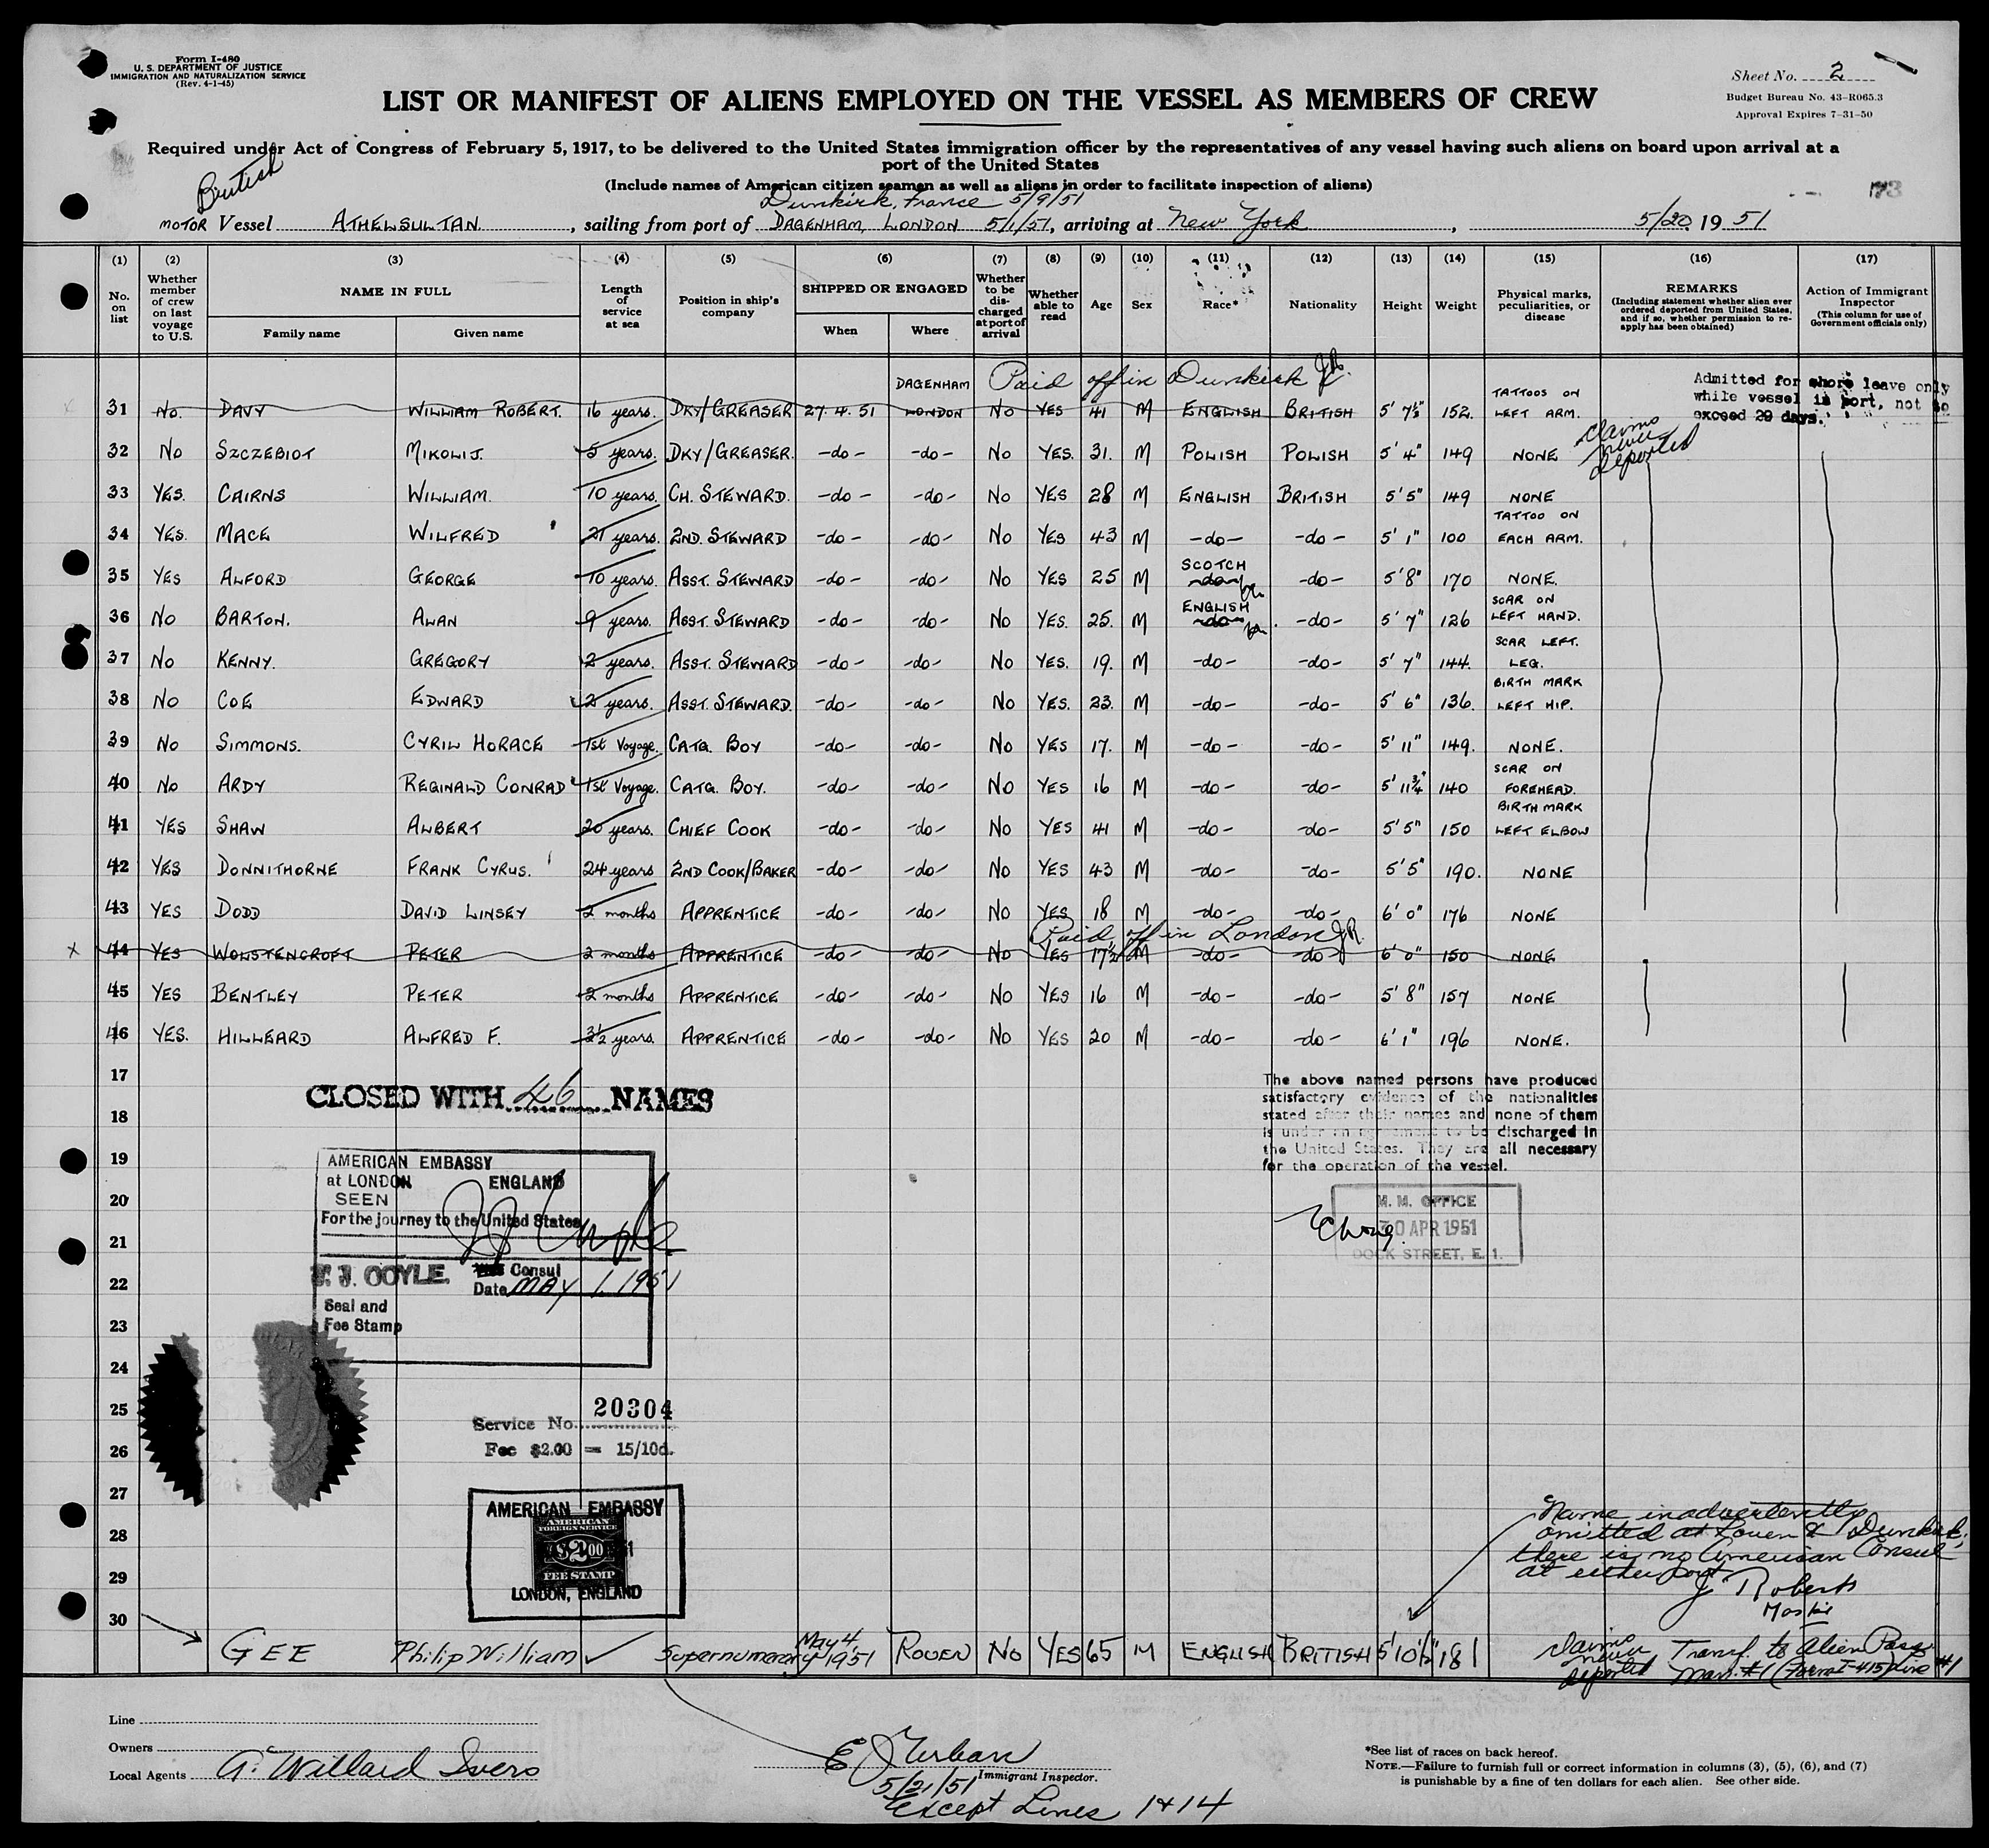 Form I-480
U. S. DEPARTMENT OF JUSTICE
IMMIGRATION AND NATURALIZATION SERVICE
(Rev. 4-1-45)
Sheet No. 2
Budget Bureau No. 43-R065.3
Approval Expires 7-31-50
LIST OR MANIFEST OF ALIENS EMPLOYED ON THE VESSEL AS MEMBERS OF CREW
Required under Act of Congress of February 5, 1917, to be delivered to the United States immigration officer by the representatives of any vessel having such aliens on board upon arrival at a
port of the United States
(Include names of American citizen seamen as well as aliens in order to facilitate inspection of aliens)
British
Dunkirk, France 5/9/51
173
MOTOR Vessel ATHELSULTAN, sailing from port of DAGENHAM, LONDON 5/1/51, arriving at New York, 5/20 1951
(1) (2) (3) (4) (5) (6) (7) (8) (9) (10) (11) (12) (13) (14) (15) (16) (17)
No. on list
Whether member of crew on last voyage to U.S.
NAME IN FULL
Family name
Given name
Length of service at sea
Position in ship's company
SHIPPED OR ENGAGED
When
Where
Whether to be discharged at port of arrival
Whether able to read
Age
Sex
Race*
Nationality
Height
Weight
Physical marks, peculiarities, or disease
REMARKS
(Including statement whether alien ever ordered deported from United States, and if so, whether permission to reapply has been obtained)
Action of Immigrant Inspector
(This column for use of Government officials only)
Paid off in Dunkirk
Admitted for shore leave only
while vessel in port, not to
exceed 29 days.
31 No. DAVY WILLIAM ROBERT. 16 years. DKY/GREASER 27.4.51 DAGENHAM LONDON No YES 41 M ENGLISH BRITISH 5' 7½" 152. TATTOOS ON LEFT ARM.
claims never deported
32 No SZCZEBIOT MIKOLIJ. 5 years. DKY/GREASER. -do- -do- No YES. 31. M POLISH POLISH 5' 4" 149 NONE
33 YES. CAIRNS WILLIAM. 10 years. CH. STEWARD. -do- -do- No YES 28 M ENGLISH BRITISH 5'5" 149 NONE
34 YES. MACE WILFRED 21 years. 2ND. STEWARD -do- -do- No YES 43 M -do- -do- 5' 1" 100 TATTOO ON EACH ARM.
35 YES ALFORD GEORGE 10 years. ASST. STEWARD -do- -do- No YES 25 M SCOTCH -do- -do- 5'8" 170 NONE.
36 No BARTON. ALAN 9 years. ASST. STEWARD -do- -do- No YES. 25. M ENGLISH -do- -do- 5' 7" 126 SCAR ON LEFT HAND.
37 No KENNY. GREGORY 2 years. ASST. STEWARD -do- -do- No YES. 19. M -do- -do- 5' 7" 144. SCAR LEFT. LEG.
38 No COE EDWARD 2 years. ASST. STEWARD. -do- -do- No YES. 23. M -do- -do- 5' 6" 136. BIRTH MARK LEFT HIP.
39 No SIMMONS. CYRIL HORACE 1st Voyage. CATG. BOY -do- -do- No YES 17. M -do- -do- 5' 11" 149. NONE.
40 No ARDY REGINALD CONRAD 1st Voyage. CATG. BOY. -do- -do- No YES 16 M -do- -do- 5' 11¾" 140 SCAR ON FOREHEAD.
41 YES SHAW ALBERT 20 years. CHIEF COOK -do- -do- No YES 41 M -do- -do- 5'5" 150 BIRTH MARK LEFT ELBOW
42 YES DONNITHORNE FRANK CYRUS. 24 years 2ND COOK/BAKER -do- -do- No YES 43 M -do- -do- 5'5" 190. NONE
43 YES DODD DAVID LINSEY 2 months APPRENTICE -do- -do- No YES 18 M -do- -do- 6' 0" 176 NONE
Paid off in London JR.
X 44 YES WOLSTENCROFT PETER 2 months APPRENTICE -do- -do- No YES 17½ M -do- -do- 6' 0" 150 NONE
45 YES BENTLEY PETER 2 months APPRENTICE -do- -do- No YES 16 M -do- -do- 5' 8" 157 NONE
46 YES. HILLEARD ALFRED F. 3½ years. APPRENTICE -do- -do- No YES 20 M -do- -do- 6' 1" 196 NONE.
17
18
19
20
21
22
23
24
25
26
27
28
29
30
CLOSED WITH 46 NAMES
The above named persons have produced
satisfactory evidence of the nationalities
stated after their names and none of them
is under an agreement to be discharged in
the United States. They are all necessary
for the operation of the vessel.
M. M. OFFICE
30 APR 1951
DOCK STREET, E. 1.
AMERICAN EMBASSY
at LONDON ENGLAND
SEEN
For the journey to the United States
Consul
Date MAY 1, 1951
Seal and
Fee Stamp
Service No. 20304
Fee $2.00 = 15/10d.
AMERICAN EMBASSY
AMERICAN
FOREIGN SERVICE
$2.00
FEE STAMP
LONDON, ENGLAND
Name inadvertently
omitted at Rouen & Dunkirk,
there is no American Consul
at either port
J Roberts
Master
GEE Philip William Supernumerary May 4 1951 ROUEN No YES 65 M ENGLISH BRITISH 5'10½" 181
claims never deported
Transf. to Alien Pass
Man. #1 (Form I-415) Line #1
Line
Owners
Local Agents A. Willard Ivers
Immigrant Inspector.
5/21/51
Except Lines 1 & 14
*See list of races on back hereof.
NOTE.—Failure to furnish full or correct information in columns (3), (5), (6), and (7)
is punishable by a fine of ten dollars for each alien. See other side.